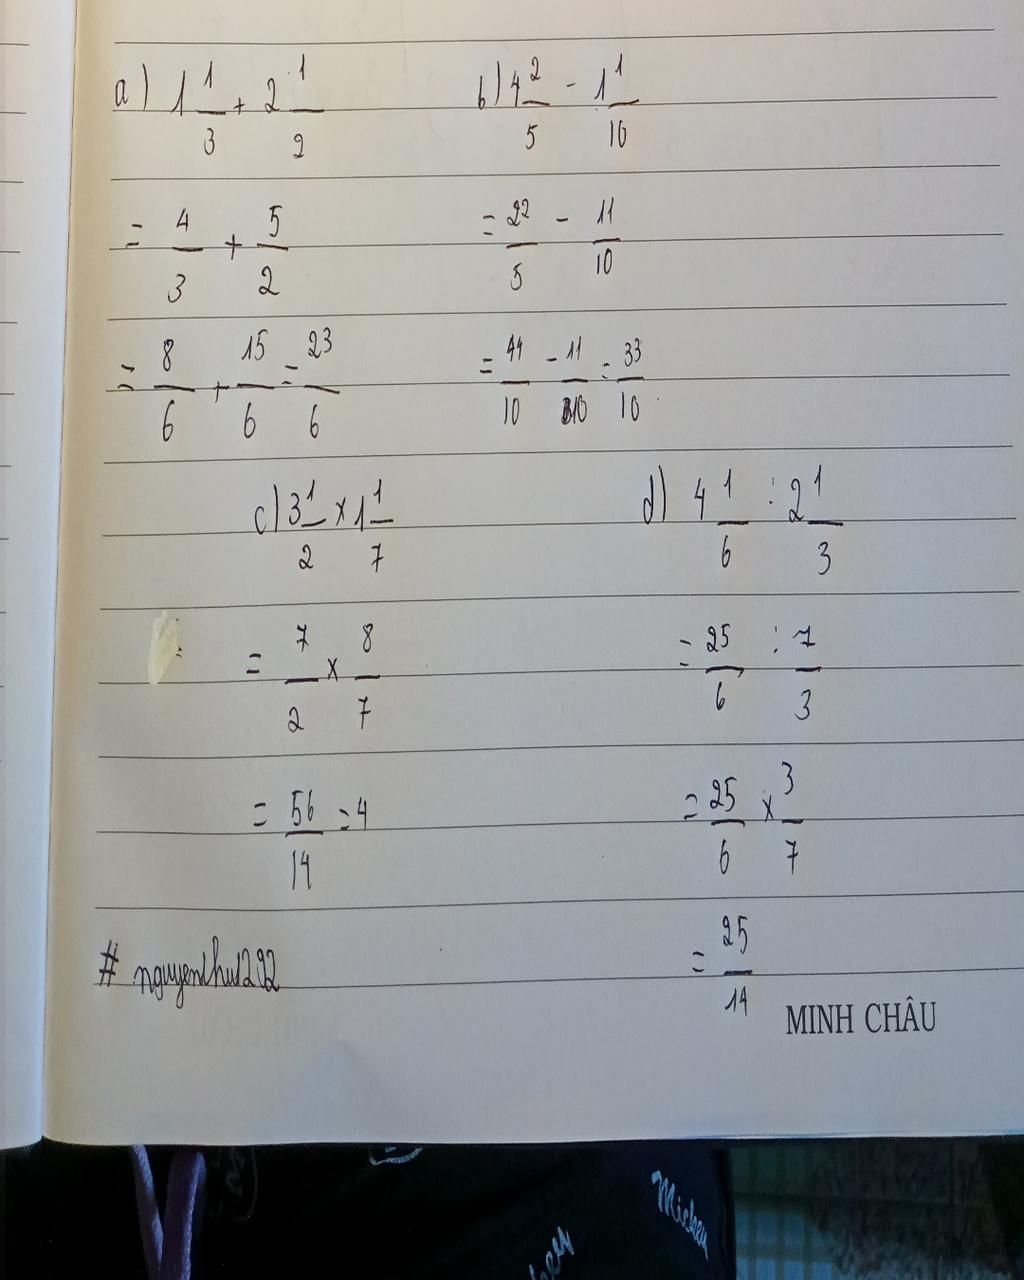 a) 1 1/3 + 2 1/2
= 4/3 + 5/2
= 8/6 + 15/6 = 23/6
b) 4 2/5 - 1 1/10
= 22/5 - 11/10
= 44/10 - 11/10 = 33/10
c) 3 1/2 x 1 1/7
= 7/2 x 8/7
= 56/14 = 4
d) 4 1/6 : 2 1/3
= 25/6 : 7/3
= 25/6 x 3/7
= 25/14
MINH CHÂU